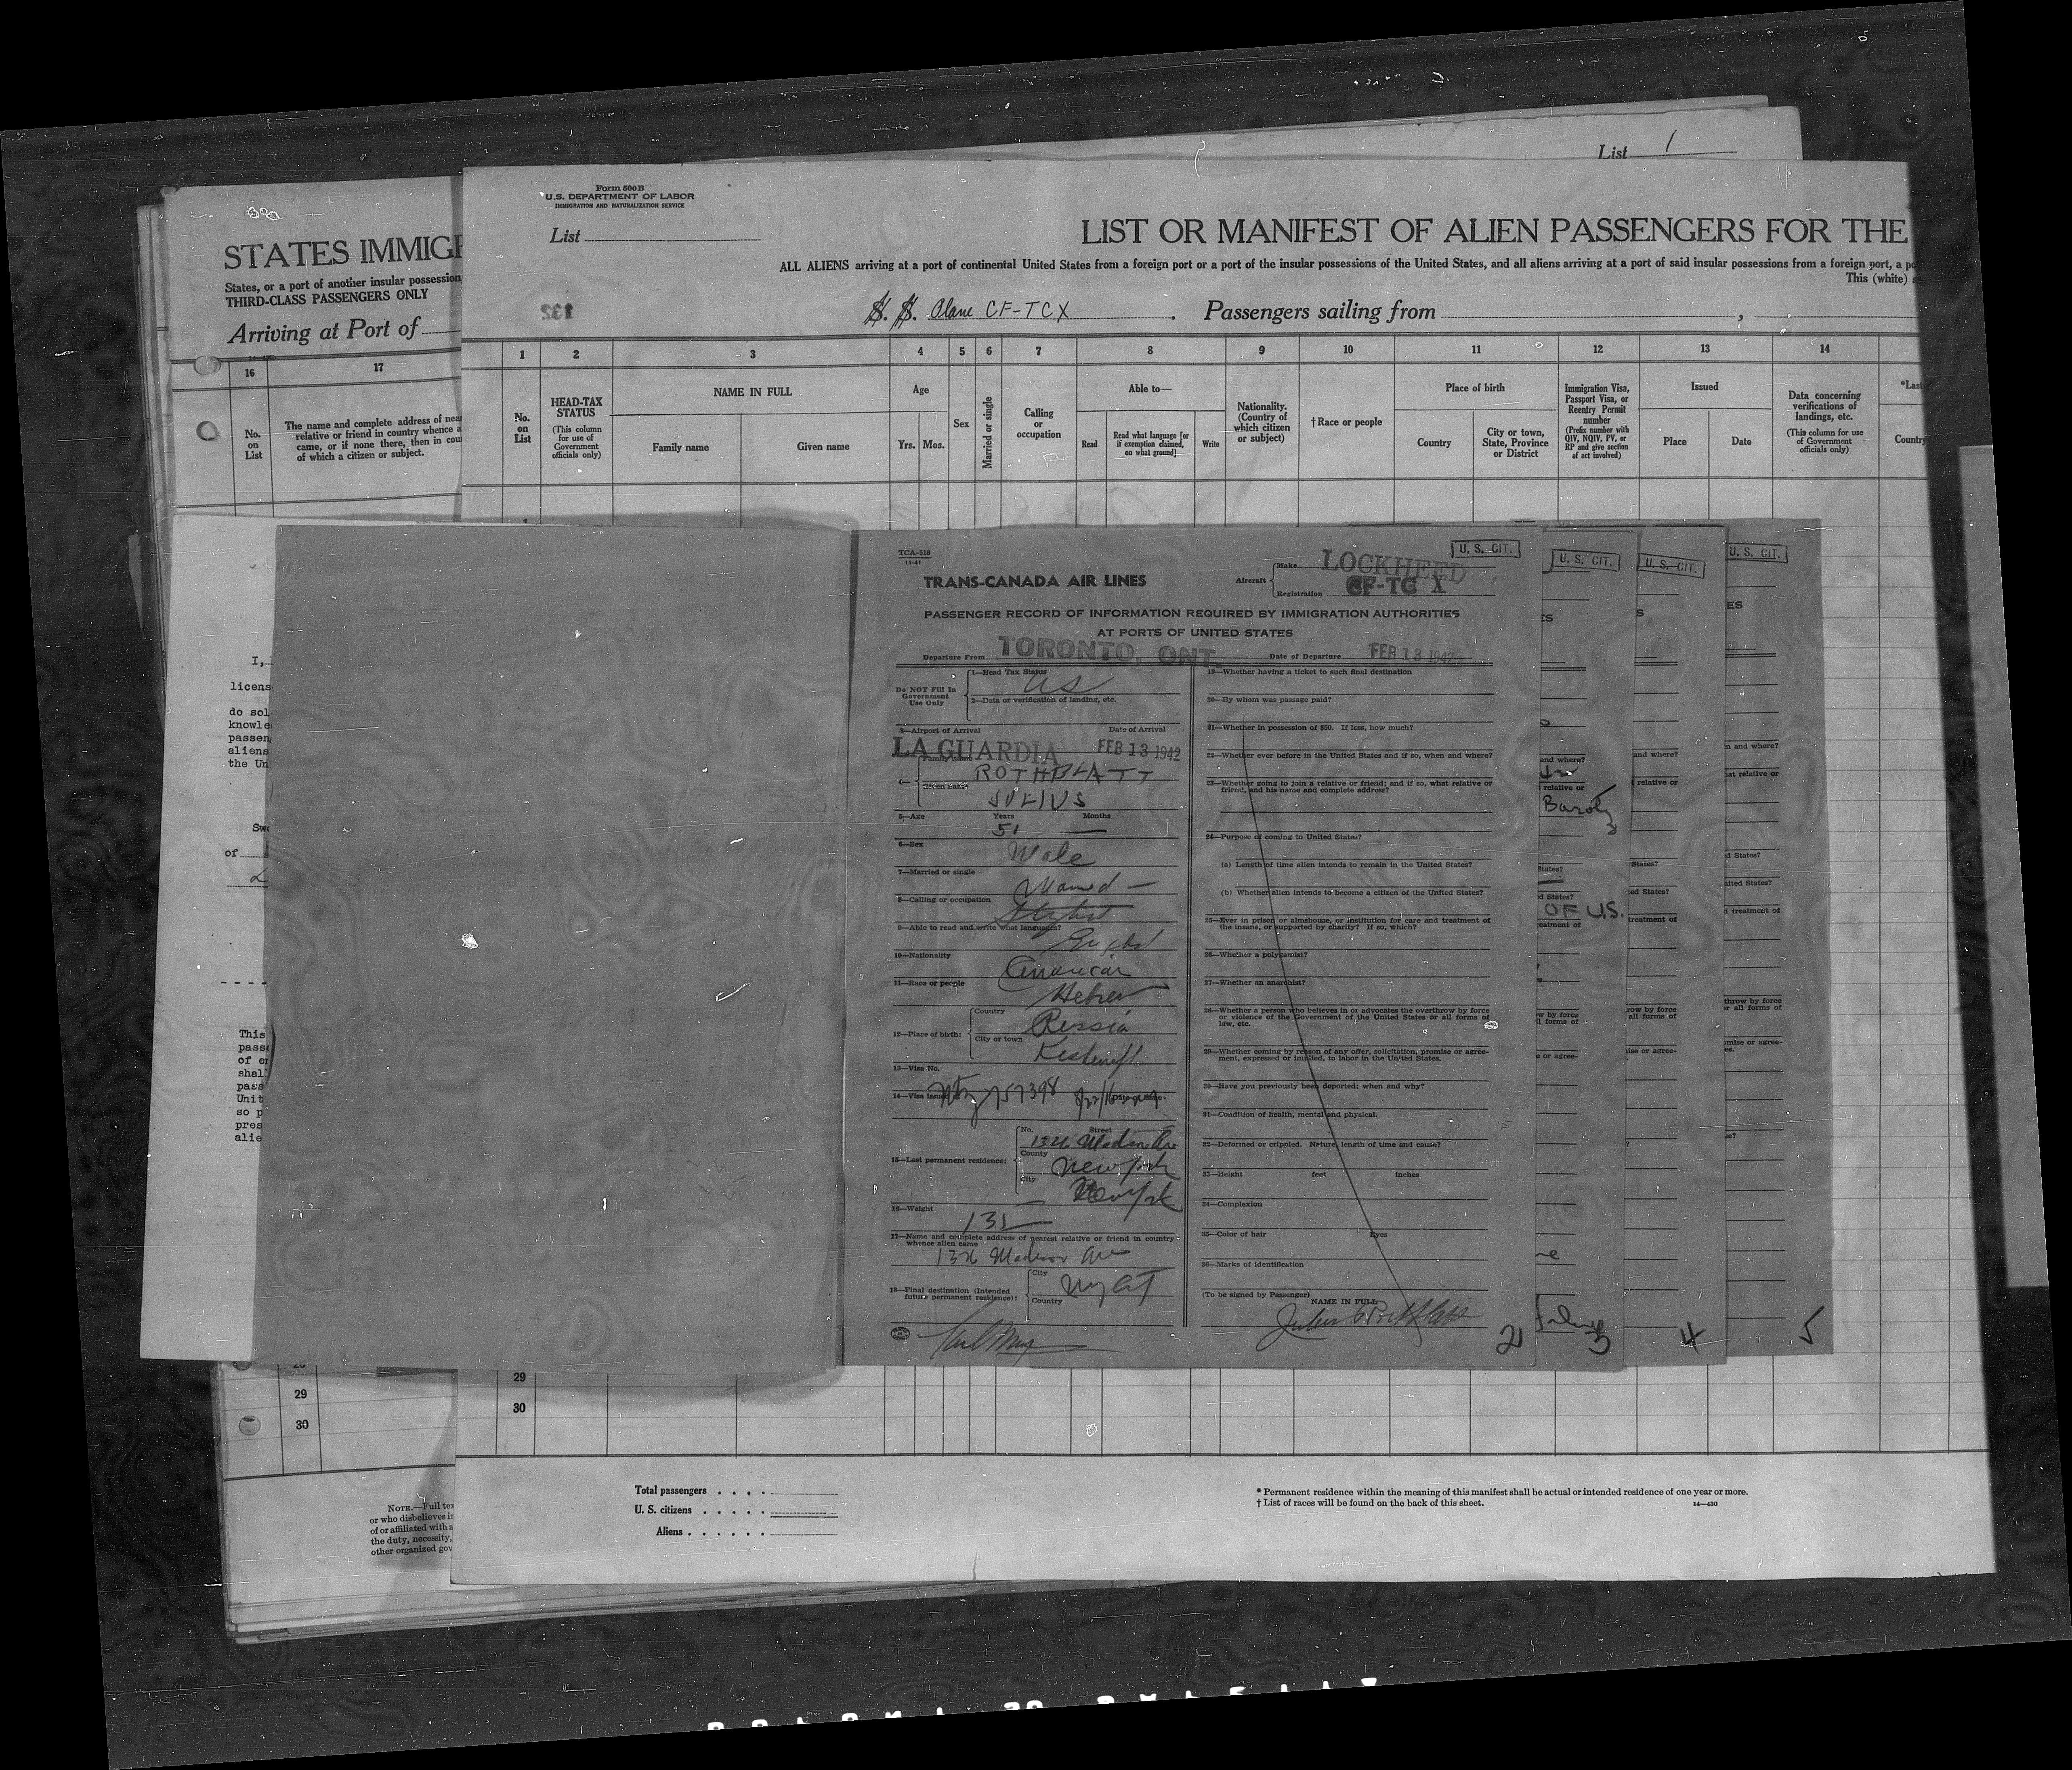 List 1
390
STATES IMMIGR
States, or a part of another insular possession
THIRD-CLASS PASSENGERS ONLY
Arriving at Port of
16 17
No. on List
The name and complete address of nea
relative or friend in country whence a
came, or if none there, then in cou
of which a citizen or subject.
Form 500B
U.S. DEPARTMENT OF LABOR
IMMIGRATION AND NATURALIZATION SERVICE
List
LIST OR MANIFEST OF ALIEN PASSENGERS FOR THE
ALL ALIENS arriving at a port of continental United States from a foreign port or a port of the insular possessions of the United States, and all aliens arriving at a port of said insular possessions from a foreign port, a po
This (white) s
132
S. S. Plane CF-TCX . Passengers sailing from ,
1 2 3 4 5 6 7 8 9 10 11 12 13 14
No. on List
HEAD-TAX STATUS
(This column for use of Government officials only)
NAME IN FULL
Family name Given name
Age
Yrs. Mos.
Sex
Married or single
Calling or occupation
Able to—
Read
Read what language [or if exemption claimed, on what ground]
Write
Nationality. (Country of which citizen or subject)
†Race or people
Place of birth
Country
City or town, State, Province or District
Immigration Visa, Passport Visa, or Reentry Permit number
(Prefix number with QIV, NQIV, PV, or RP and give section of act involved)
Issued
Place Date
Data concerning verifications of landings, etc.
(This column for use of Government officials only)
*Las
Country
I,
licens
do sol
knowle
passen
aliens
the Un
Swo
of
This
passe
of en
shal
pass
Unit
so p
pres
alie
TCA-318
11-41
TRANS-CANADA AIR LINES
Aircraft
Make LOCKHEED
Registration CF-TC X
U. S. CIT.
PASSENGER RECORD OF INFORMATION REQUIRED BY IMMIGRATION AUTHORITIES
AT PORTS OF UNITED STATES
Departure From TORONTO, ONT. Date of Departure FEB 13 1942
Do NOT Fill In
Government
Use Only
1—Head Tax Status US
2—Data or verification of landing, etc.
3—Airport of Arrival Date of Arrival
LA GUARDIA FEB 13 1942
4— Family name ROTHBLATT
Given name JULIUS
5—Age Years 51 Months —
6—Sex Male
7—Married or single Married —
8—Calling or occupation
9—Able to read and write what languages? English
10—Nationality American
11—Race or people Hebrew
12—Place of birth: Country Russia
City or town
13—Visa No.
14—Visa issued
15—Last permanent residence: No. Street
1326 Madison Ave
County New York
City New York
16—Weight
17—Name and complete address of nearest relative or friend in country
whence alien came
1326 Madison Ave
18—Final destination (Intended
future permanent residence): City
Country
19—Whether having a ticket to such final destination
20—By whom was passage paid?
21—Whether in possession of $50. If less, how much?
22—Whether ever before in the United States and if so, when and where?
23—Whether going to join a relative or friend; and if so, what relative or
friend, and his name and complete address?
24—Purpose of coming to United States?
(a) Length of time alien intends to remain in the United States?
(b) Whether alien intends to become a citizen of the United States?
25—Ever in prison or almshouse, or institution for care and treatment of
the insane, or supported by charity? If so, which?
26—Whether a polygamist?
27—Whether an anarchist?
28—Whether a person who believes in or advocates the overthrow by force
or violence of the Government of the United States or all forms of
law, etc.
29—Whether coming by reason of any offer, solicitation, promise or agree-
ment, expressed or implied, to labor in the United States.
30—Have you previously been deported; when and why?
31—Condition of health, mental and physical.
32—Deformed or crippled. Nature, length of time and cause?
33—Height feet inches
34—Complexion
35—Color of hair Eyes
36—Marks of identification
(To be signed by Passenger)
NAME IN FULL
Julius Rothblatt
2
U. S. CIT.
and where?
relative or
States?
OF U.S.
3
U. S. CIT.
and where?
relative or
States?
treatment of
4
U. S. CIT.
n and where?
at relative or
d States?
nited States?
d treatment of
throw by force
or all forms of
omise or agree-
5
29
30
29
30
NOTE.—Full tex
or who disbelieves in
of or affiliated with a
the duty, necessity,
other organized gov
Total passengers . . . .
U. S. citizens . . . . .
Aliens . . . . . .
* Permanent residence within the meaning of this manifest shall be actual or intended residence of one year or more.
† List of races will be found on the back of this sheet.
14—430